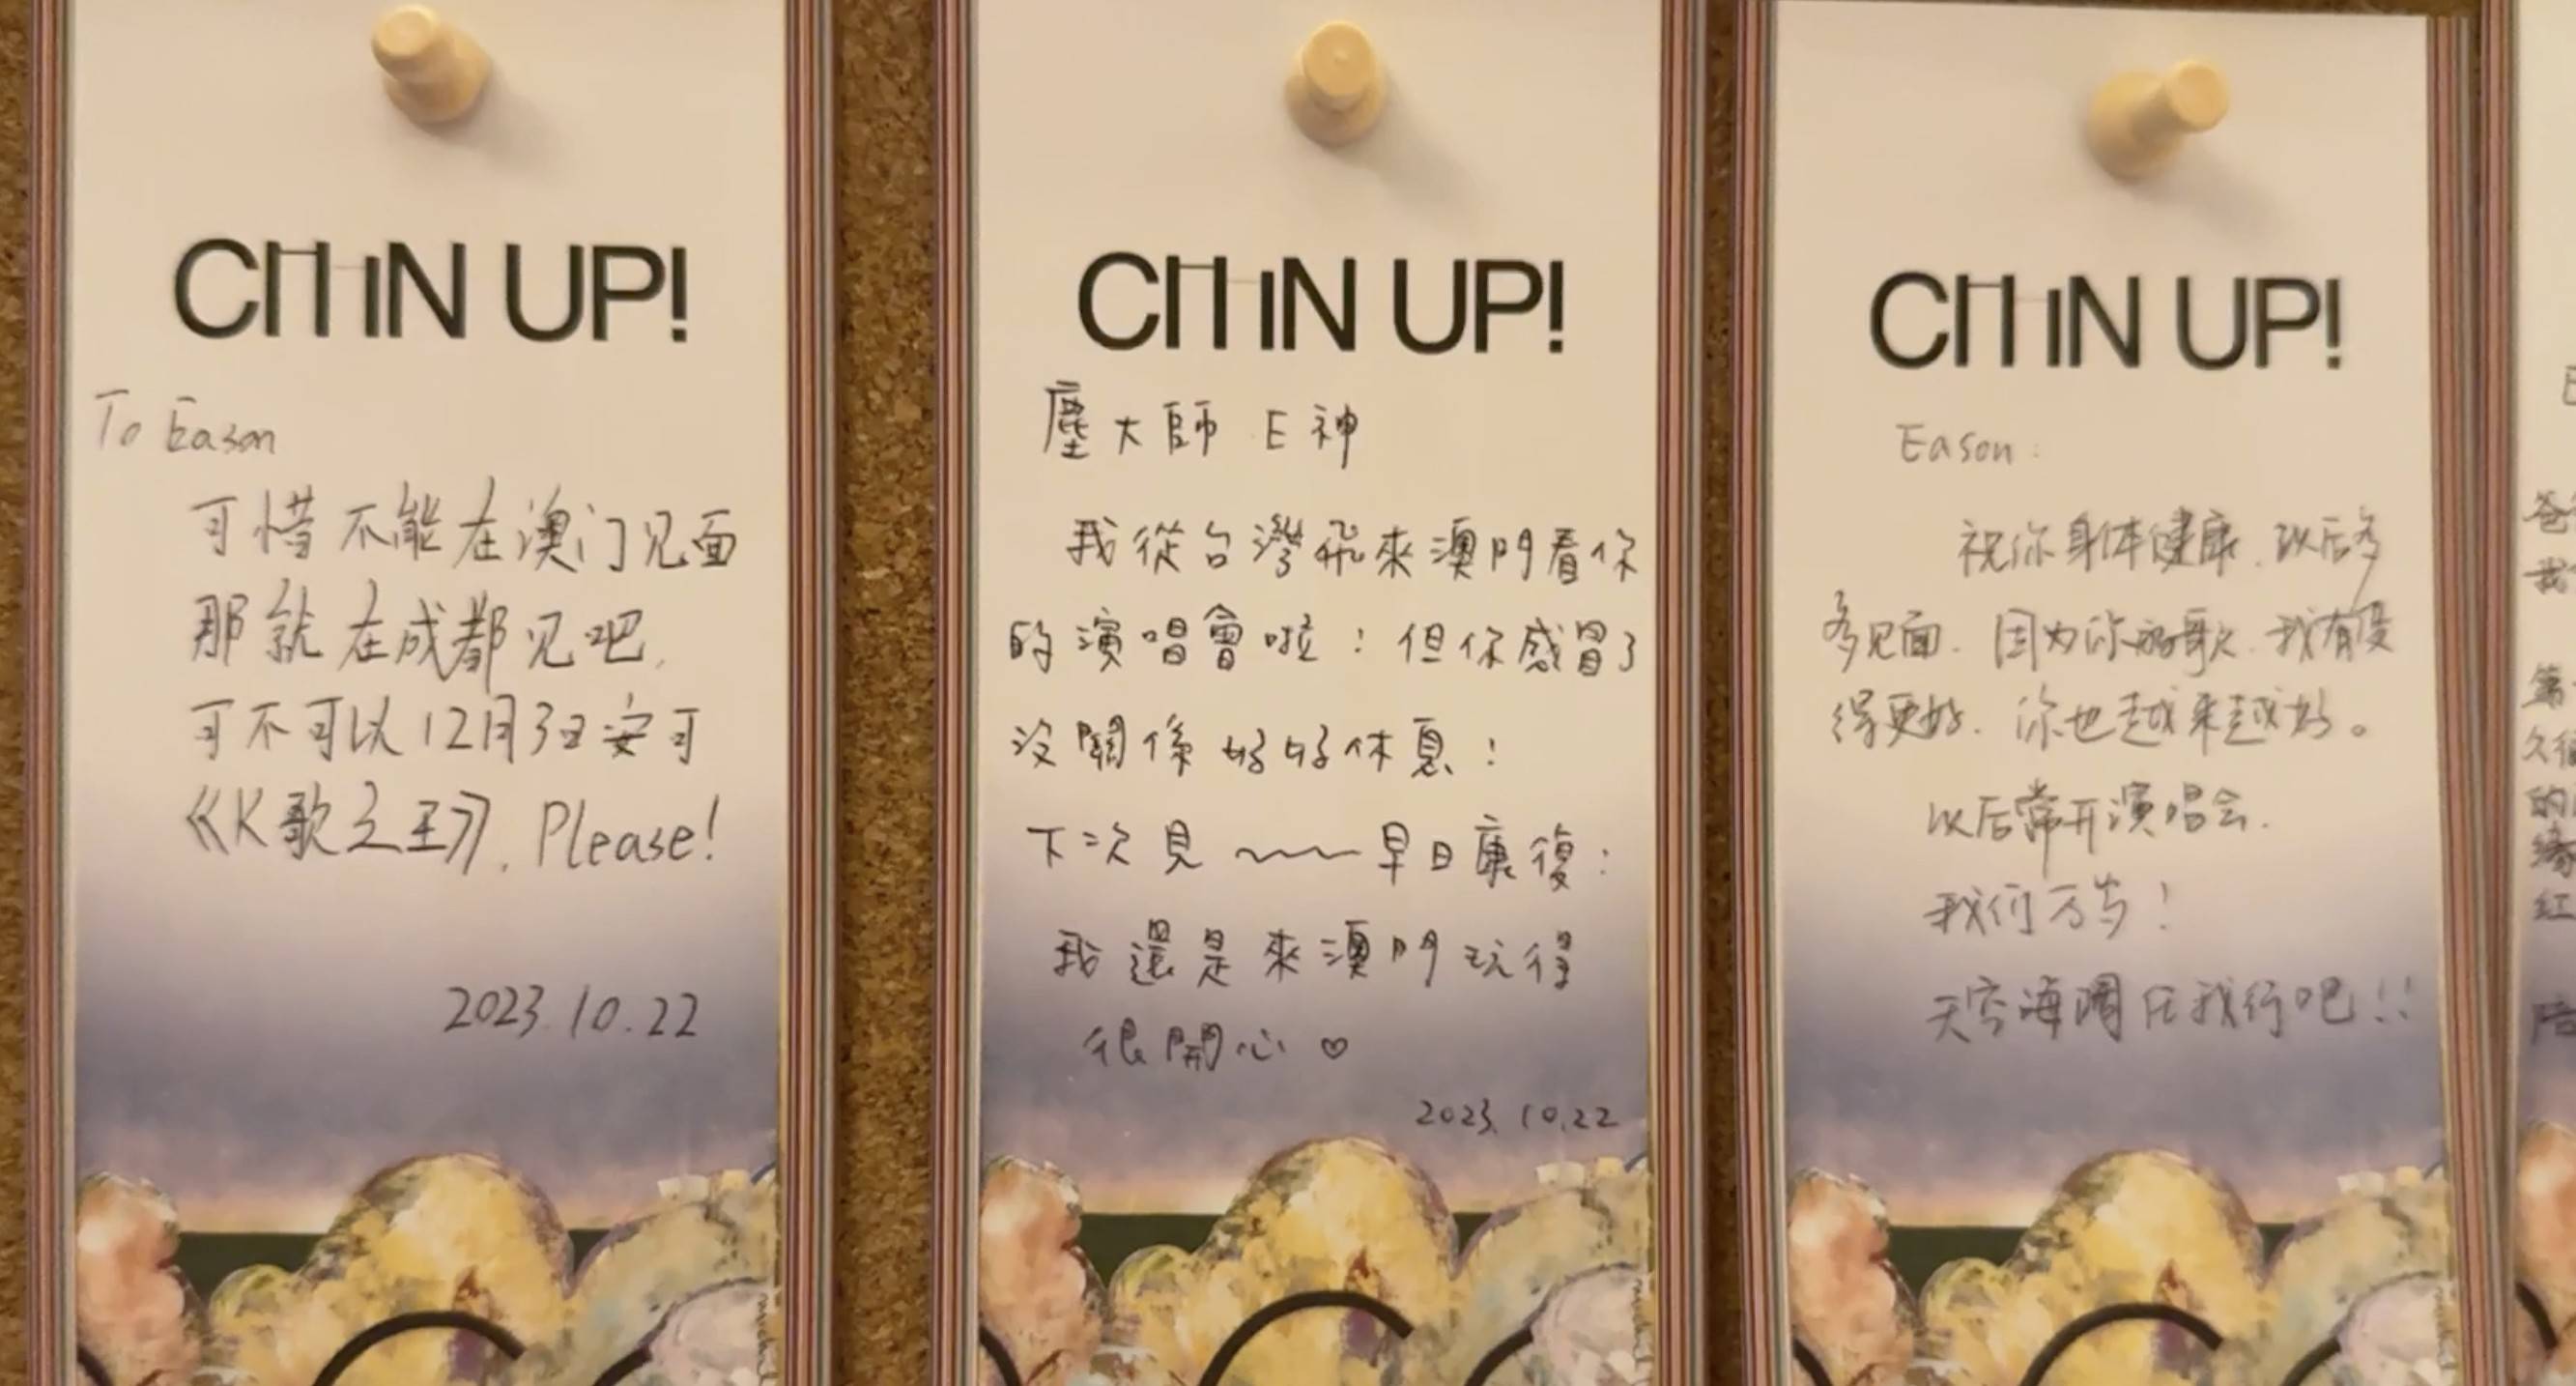 CHIN UP!
To Eason
可惜不能在澳门见面
那就在成都见吧,
可不可以12月3日安可
《K歌之王》, Please!
2023.10.22
CHIN UP!
塵大師 E神
我從台灣飛來澳門看你
的演唱會啦！但你感冒了
沒關係好好休息！
下次見~~~早日康復！
我還是來澳門玩得
很開心♡
2023.10.22
CHIN UP!
Eason:
祝你身体健康,以后多
多见面.因为你的歌.我有变
得更好.你也越来越好。
以后常开演唱会.
我们万岁！
天空海阔任我行吧!!